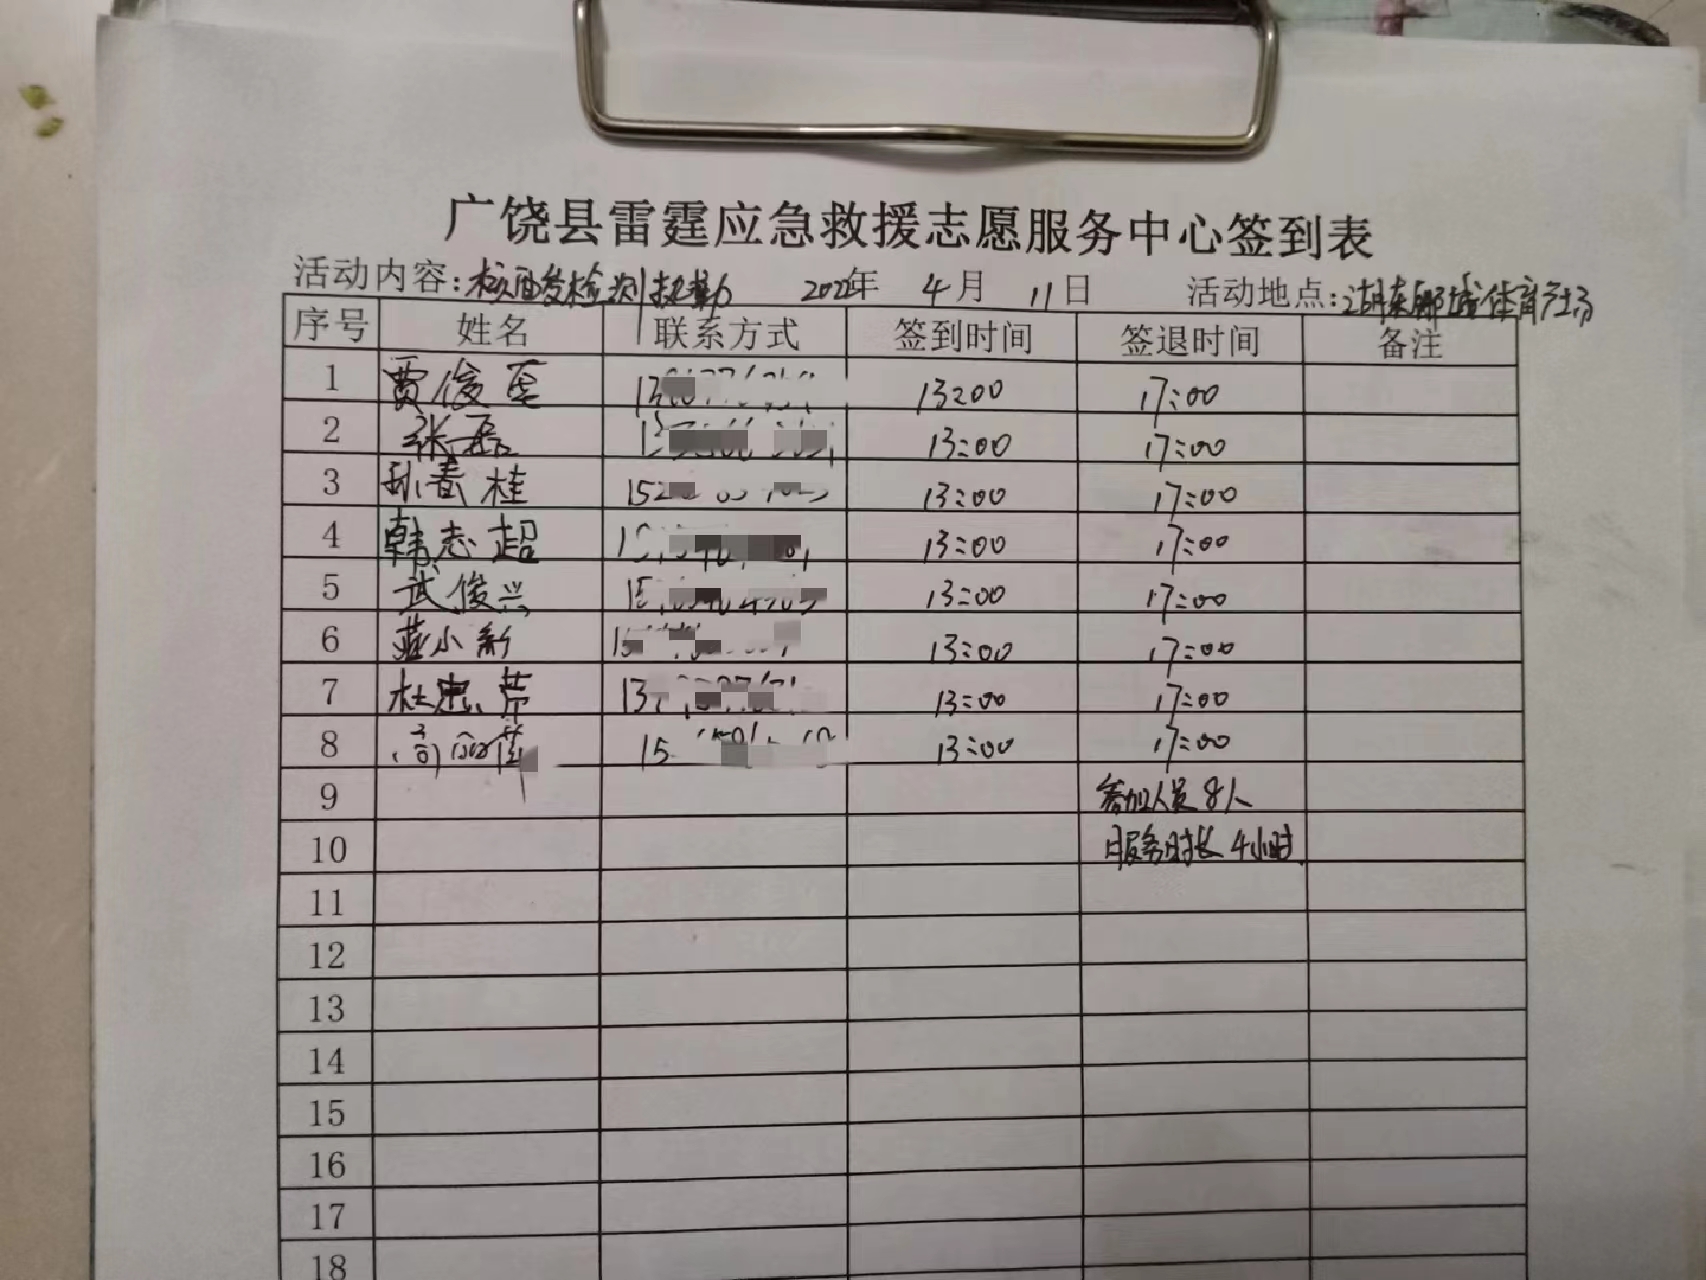 广饶县雷霆应急救援志愿服务中心签到表
活动内容:核酸检测执勤 2022年 4月 11日 活动地点:湖东郦城体育广场
序号 姓名 联系方式 签到时间 签退时间 备注
1 贾俊 13:00 17:00
2 张磊 13:00 17:00
3 孙春桂 152 13:00 17:00
4 韩志超 13:00 17:00
5 武俊兴 13:00 17:00
6 小新 13:00 17:00
7 杜忠芹 13:00 17:00
8 高 15 13:00 17:00
9 参加人员8人
10 服务时长4小时
11
12
13
14
15
16
17
18